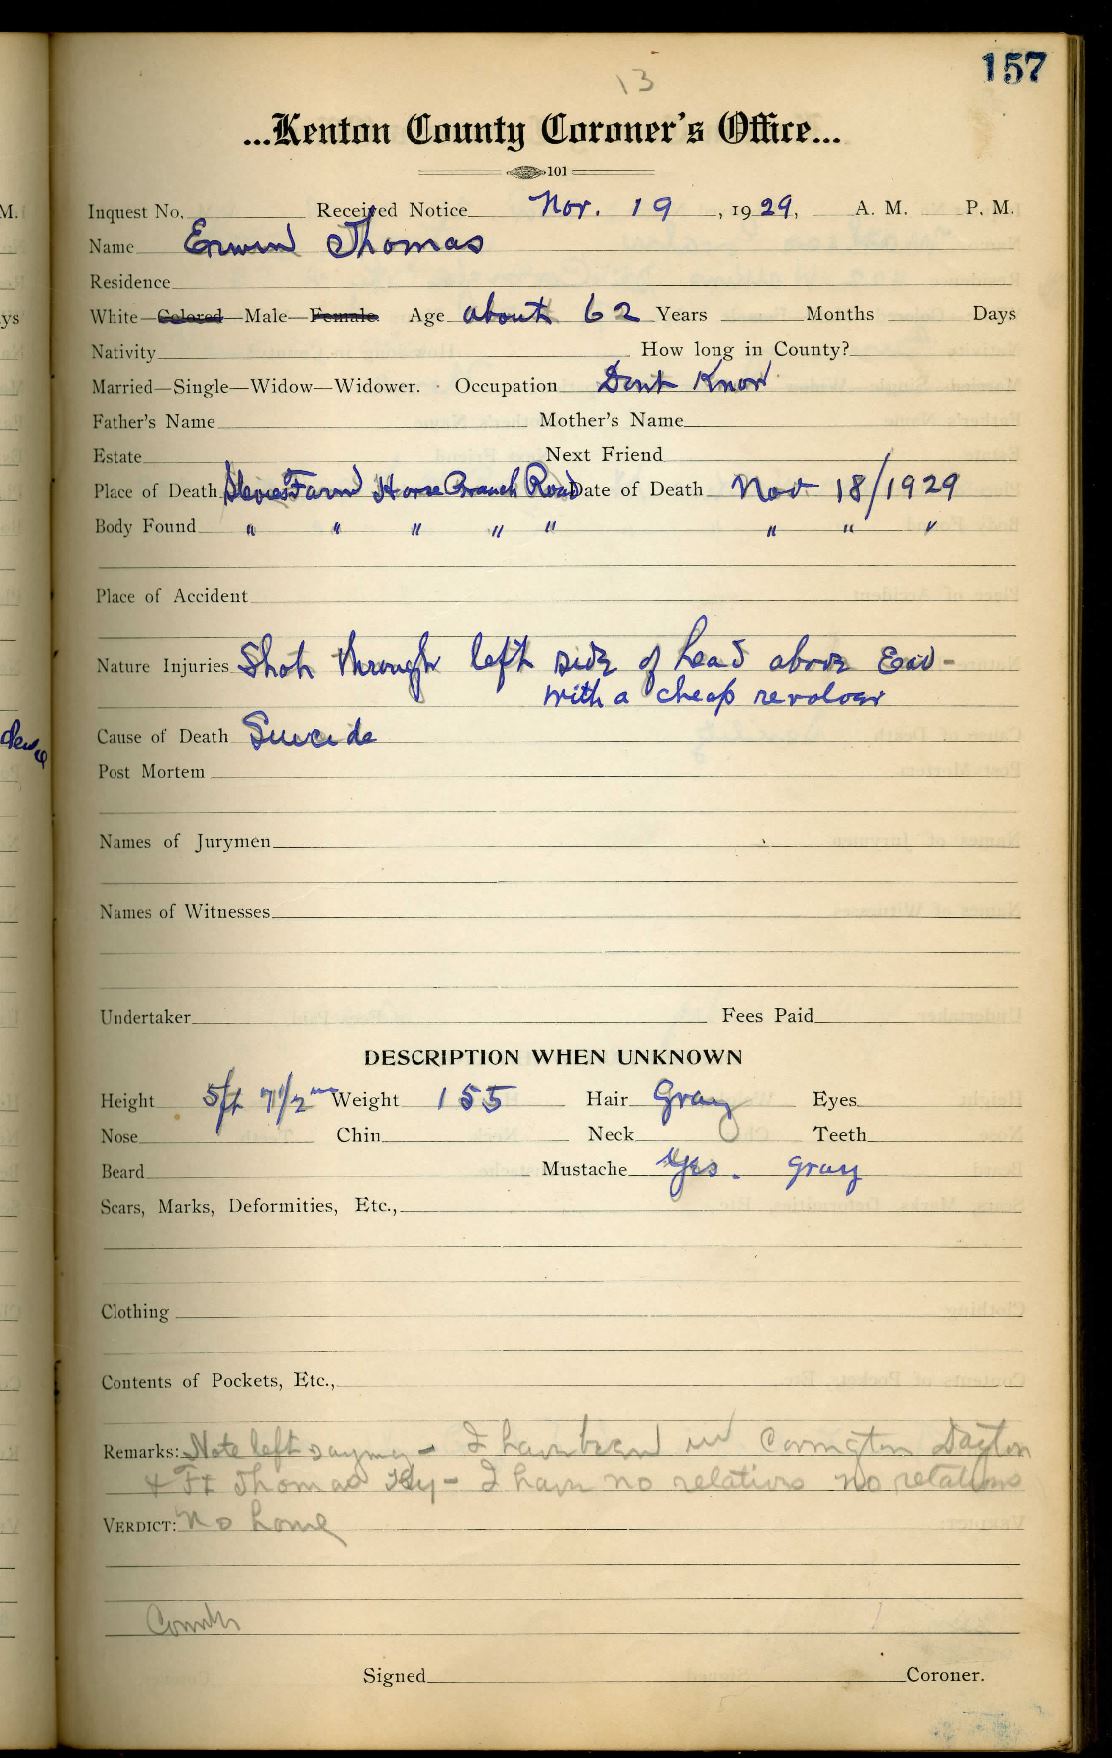 157
13
...Kenton County Coroner's Office...
101
Inquest No. Received Notice Nov. 19, 1929, A. M. P. M.
Name Erwin Thomas
Residence
White—Colored—Male—Female Age about 62 Years Months Days
Nativity How long in County?
Married—Single—Widow—Widower. Occupation Dont Know
Father's Name Mother's Name
Estate Next Friend
Place of Death Farm Horse Branch Road Date of Death Nov 18/1929
Body Found " " " " " " " "
Place of Accident
Nature Injuries Shot through left side of head above Ear-
with a cheap revolver
Cause of Death Suicide
Post Mortem
Names of Jurymen
Names of Witnesses
Undertaker Fees Paid
DESCRIPTION WHEN UNKNOWN
Height 5ft 7 1/2 in Weight 155 Hair Gray Eyes
Nose Chin Neck Teeth
Beard Mustache Yes. gray
Scars, Marks, Deformities, Etc.,
Clothing
Contents of Pockets, Etc.,
Remarks: Note left saying - I have been in Covington Dayton
& Ft Thomas Ky - I have no relatives no relations
VERDICT: No home
Signed Coroner.